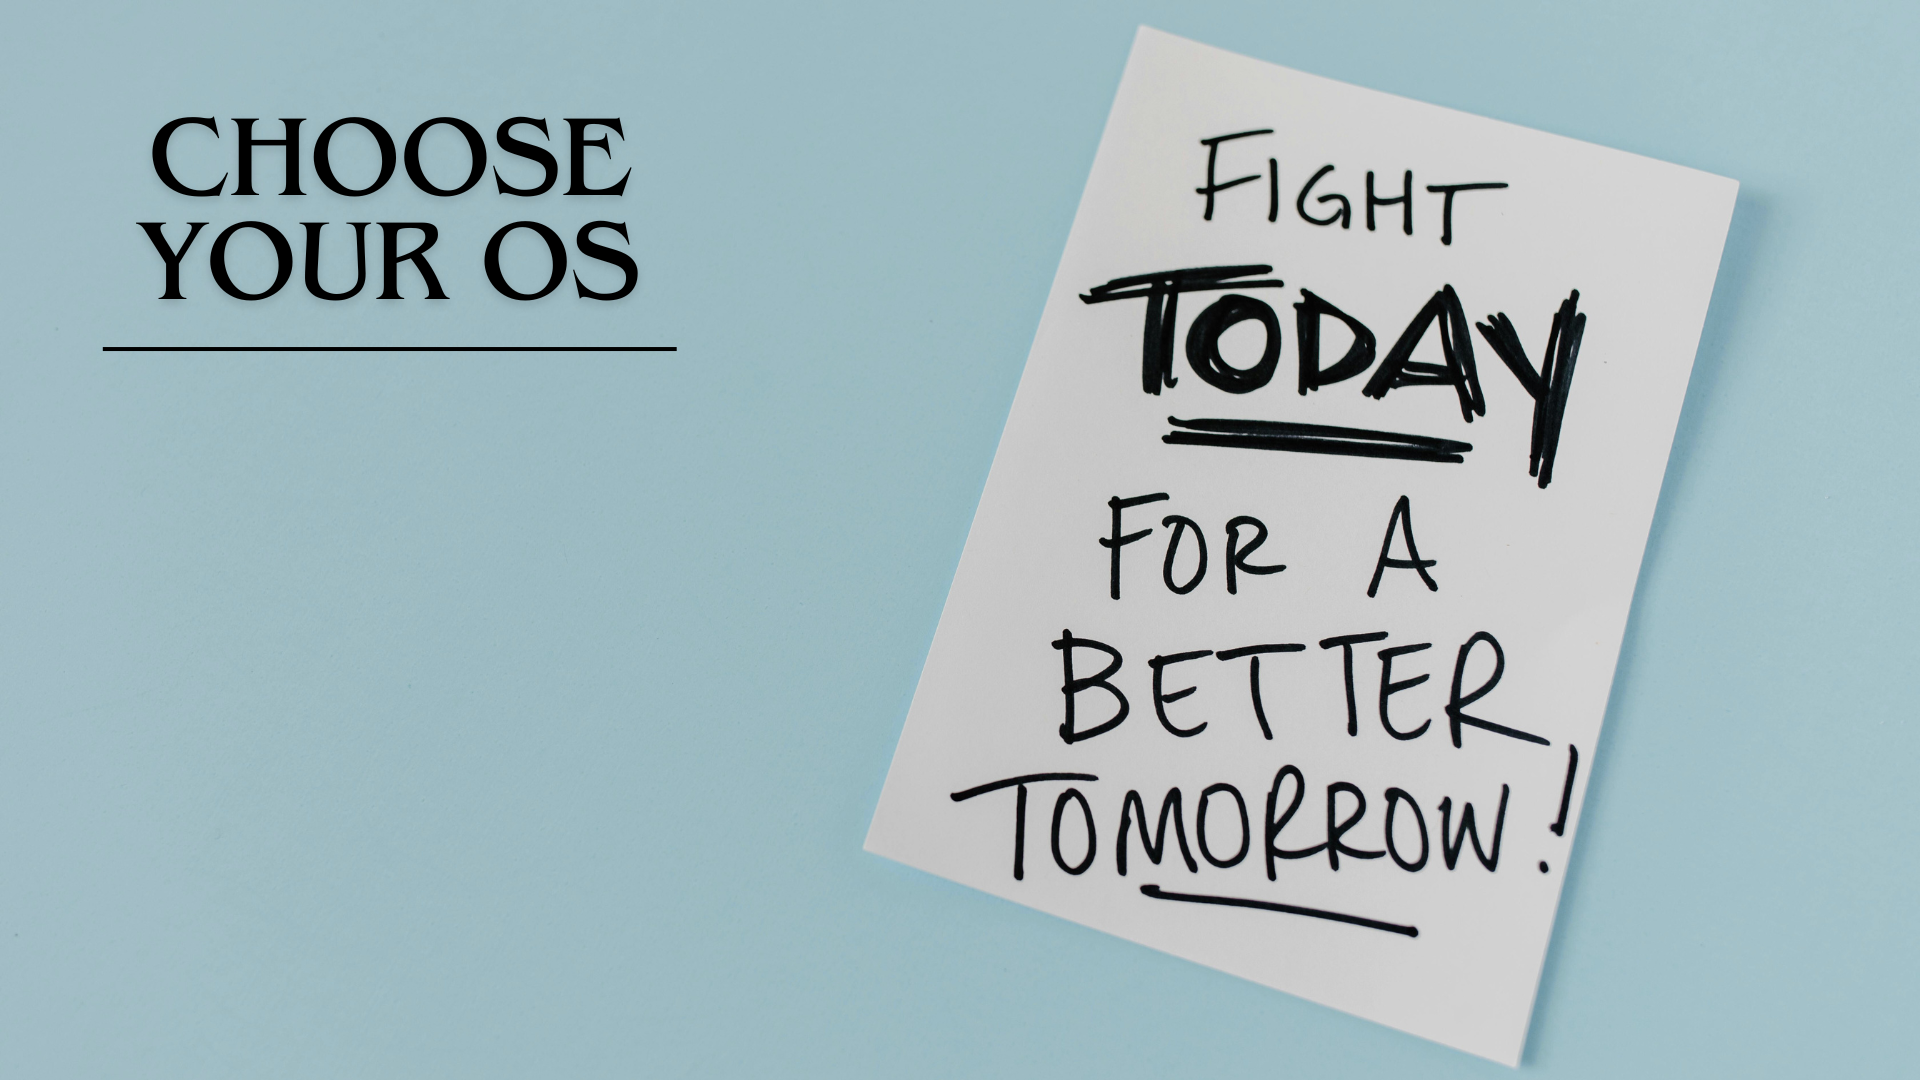 CHOOSE
YOUR OS
FIGHT
TODAY
FOR A
BETTER
TOMORROW!